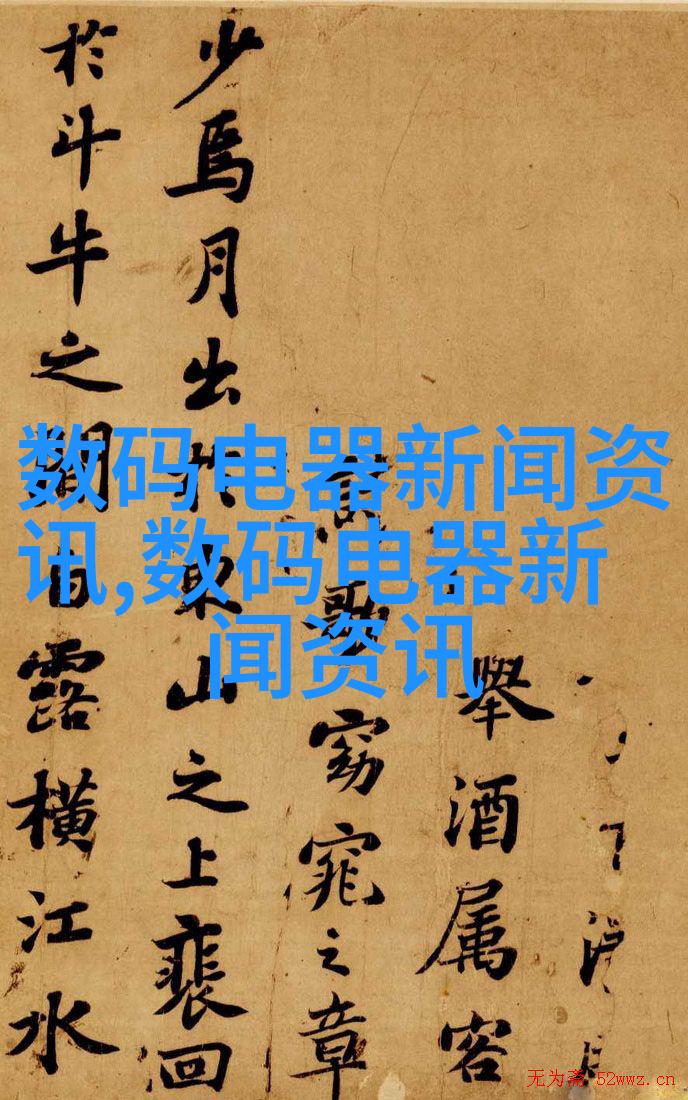 舉酒属客
歌窈窕之章
少焉月出於東山之上裴回
於斗牛之間白露橫江水
数码电器新闻资
讯,数码电器新
闻资讯
无为斋 52wwz.cn